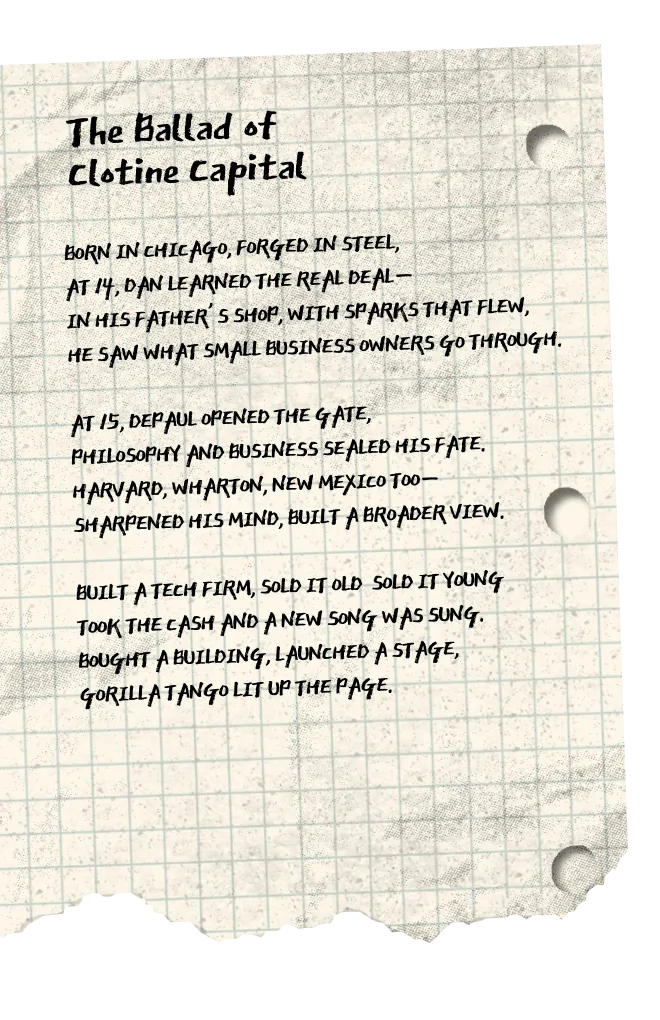 The Ballad of
Clotine Capital
BORN IN CHICAGO, FORGED IN STEEL,
AT 14, DAN LEARNED THE REAL DEAL—
IN HIS FATHER'S SHOP, WITH SPARKS THAT FLEW,
HE SAW WHAT SMALL BUSINESS OWNERS GO THROUGH.
AT 15, DEPAUL OPENED THE GATE,
PHILOSOPHY AND BUSINESS SEALED HIS FATE.
HARVARD, WHARTON, NEW MEXICO TOO—
SHARPENED HIS MIND, BUILT A BROADER VIEW.
BUILT A TECH FIRM, SOLD IT OLD SOLD IT YOUNG
TOOK THE CASH AND A NEW SONG WAS SUNG.
BOUGHT A BUILDING, LAUNCHED A STAGE,
GORILLA TANGO LIT UP THE PAGE.